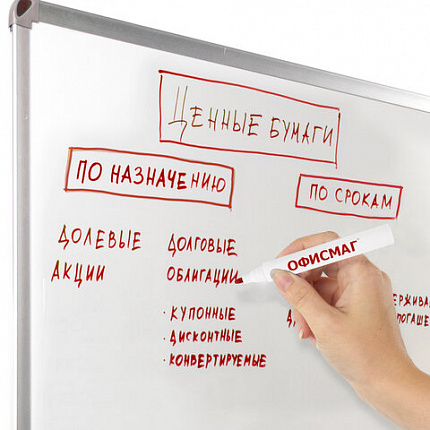 ЦЕННЫЕ БУМАГИ
ПО НАЗНАЧЕНИЮ
ПО СРОКАМ
ДОЛЕВЫЕ
АКЦИИ
ДОЛГОВЫЕ
ОБЛИГАЦИИ
· КУПОННЫЕ
· ДИСКОНТНЫЕ
· КОНВЕРТИРУЕМЫЕ
ОФИСМАГ